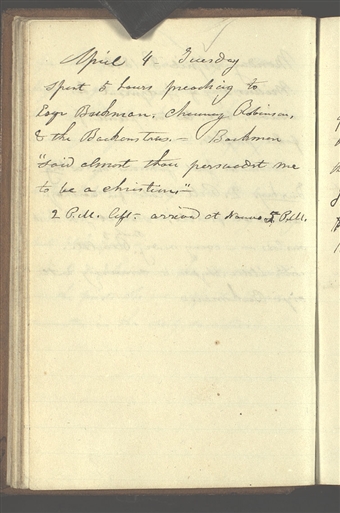 April 4 Tuesday
spent 5 hours preaching to
Esqr Backman, Chauncy Robinson,
& the Backenstows.— Backman
"said almost thou persuadest me
to be a christian"—
2 P.M. left - arrivd at Nauvoo 5 P.M.